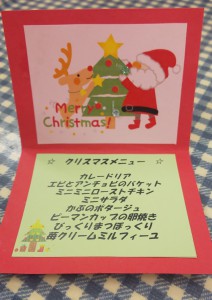 Merry
Christmas!
☆ クリスマスメニュー ☆
カレードリア
エビとアンチョビのバケット
ミニミニローストチキン
ミニサラダ
かぶのポタージュ
ピーマンカップの卵焼き
びっくりまつぼっくり
苺クリームミルフィーユ